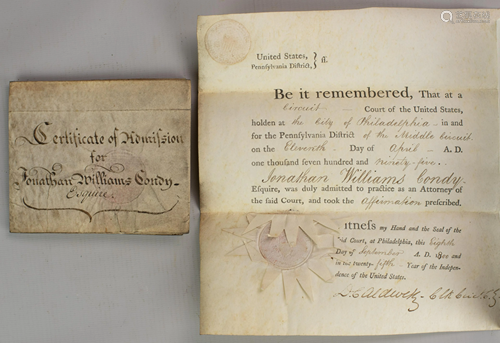 Certificate of Admission
for
Jonathan Williams Condy
Esquire
United States,
Pennsylvania District, } ſſ.
Be it remembered, That at a
Circuit Court of the United States,
holden at the City of Philadelphia in and
for the Pennsylvania District of the Middle Circuit
on the Eleventh Day of April A. D.
one thousand seven hundred and ninety five.
Jonathan Williams Condy
Esquire, was duly admitted to practice as an Attorney of
the said Court, and took the Affirmation prescribed.
Witness my Hand and the Seal of the
said Court, at Philadelphia, this Eighth
Day of September A. D. 1800 and
in the twenty-fifth Year of the Indepen-
dence of the United States.
D. Caldwell